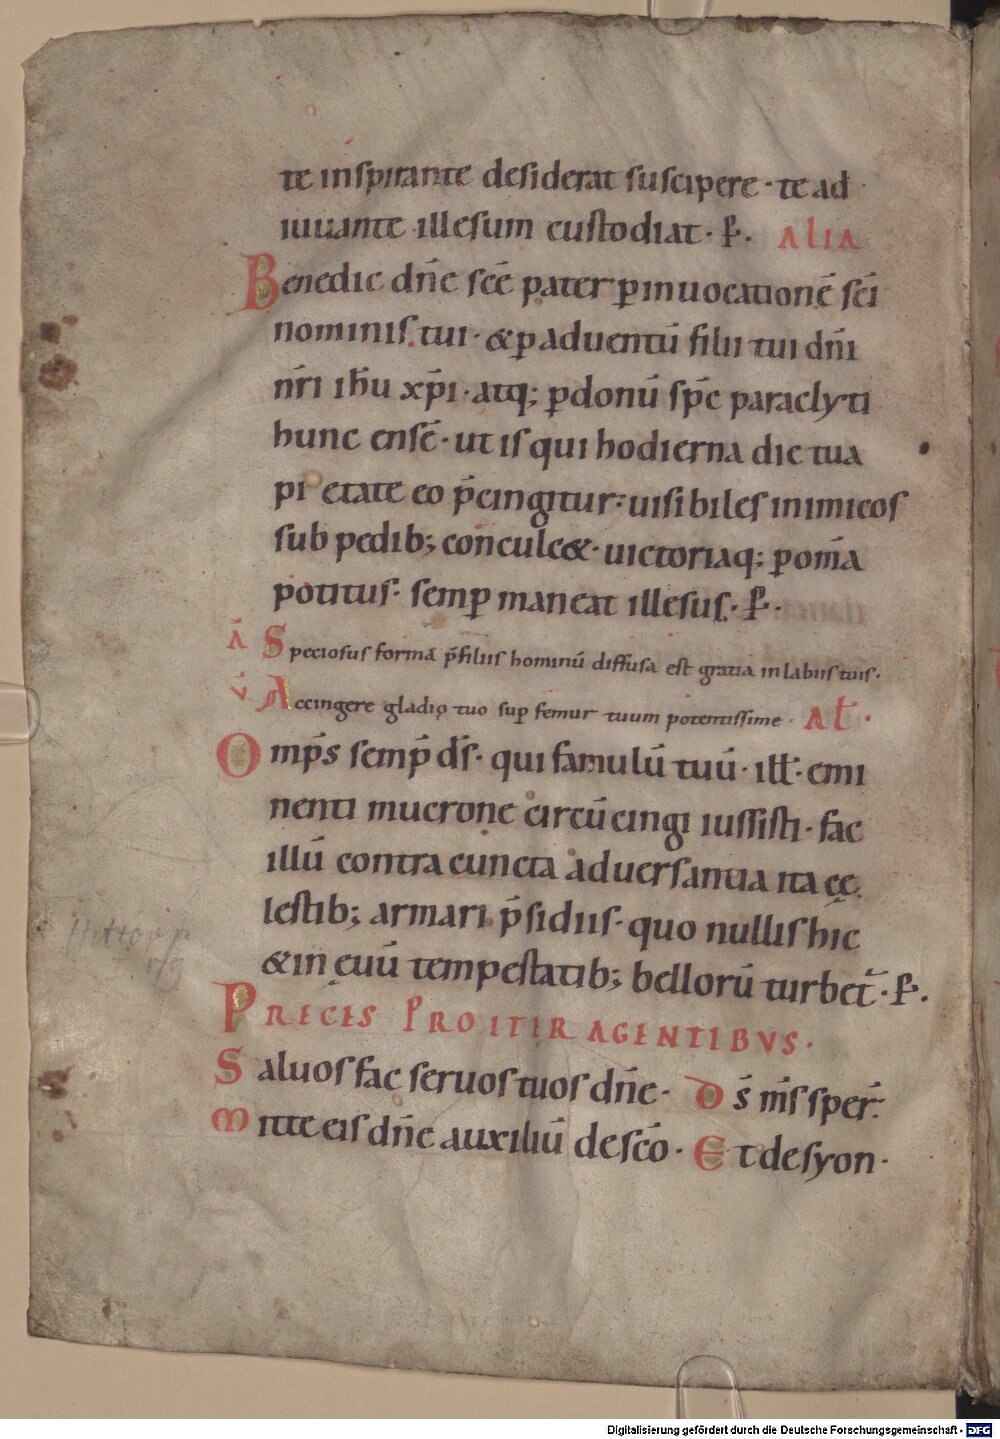 te inspirante desiderat suscipere · te ad
iuuante illesum custodiat · ꝑ · ALIA
Benedic dn̄e sc̄e pater ꝑ inuocationē sc̄i
nominis tui · & ꝑ aduentū filii tui dn̄i
nr̄i ih̄u xp̄i · atq; ꝑ donū sp̄c paraclyti
hunc ensē · ut is qui hodierna die tua
pietate eo p̄cingitur · uisibiles inimicos
sub pedib; conculc& · uictoriaq; ꝑ om̄a
potitus · semꝑ maneat illesus · ꝑ ·
Ā Speciosus forma p̄ filiis hominū diffusa est gratia in labiis tuis ·
V̄ Accingere gladio tuo suꝑ femur tuum potentissime · AL̄ ·
Omp̄s semp̄ d̄s · qui famulū tuū · ill̄ · emi
nenti mucrone circūcingi iussisti · fac
illū contra cuncta aduersantia ita cę
lestib; armari p̄sidiis · quo nullis hic
& in ęuū tempestatib; bellorū turbet̄ · ꝑ ·
PRECES PRO ITER AGENTIBVS ·
Saluos fac seruos tuos dn̄e · D̄s m̄s sper̄ ·
Mitte eis dn̄e auxiliū de sc̄o · Et de syon ·
Hittorp
Digitalisierung gefördert durch die Deutsche Forschungsgemeinschaft - DFG